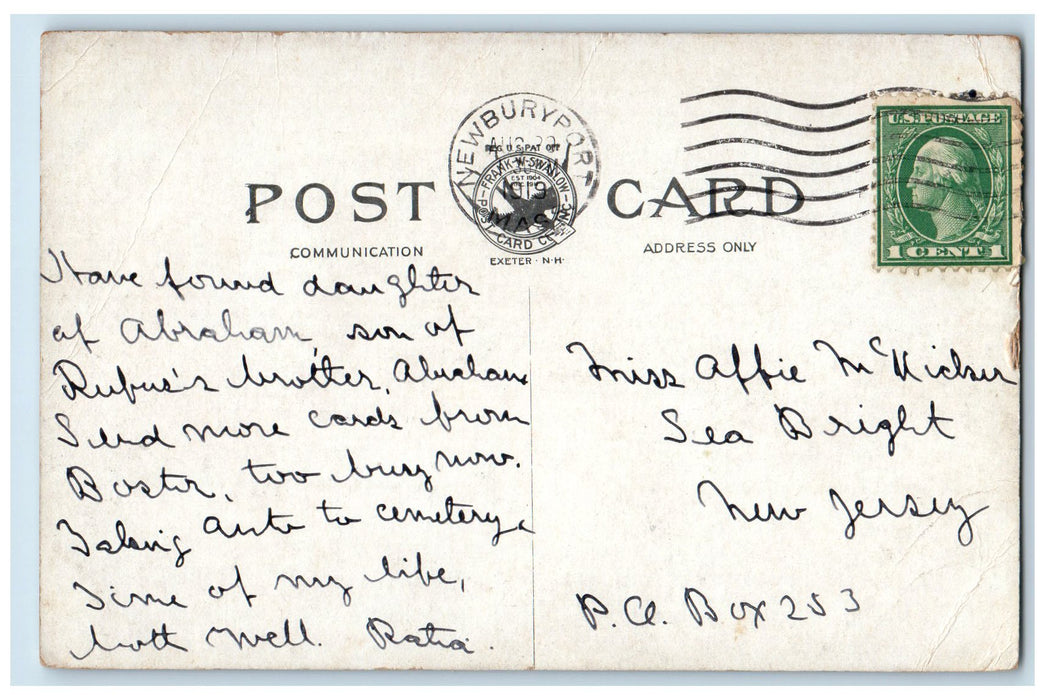 NEWBURYPORT
AUG 29
1919
MASS
REG. U.S. PAT. OFF.
FRANK·W·SWALLOW
EST 1904
POST CARD CO. INC.
EXETER·N·H·
U.S. POSTAGE
1 CENT 1
POST CARD
COMMUNICATION
ADDRESS ONLY
Have found daughter
of Abraham, son of
Rufus's brother, Abraham
Send more cards from
Boston, too busy now.
Taking auto to cemetery.
Time of my life,
both well.
Miss Affie
Sea Bright
New Jersey
P.O. Box 253